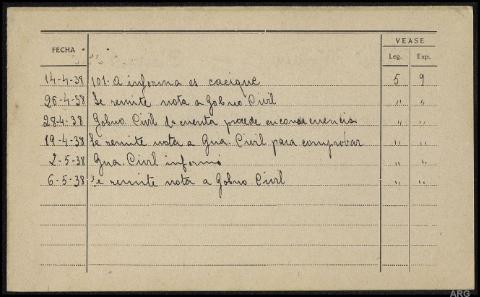 VEASE
FECHA Leg. Exp.
14-4-38 101-A informa es cacique 5 9
26-4-38 Se remite nota a Gobno Civil " "
28-4-38 Gobno Civil da cuenta procede en consecuencia " "
19-4-38 Se remite nota a Gua. Civil para comprobar " "
2-5-38 Gua. Civil informó " "
6-5-38 Se remite nota a Gobno Civil " "
ARG